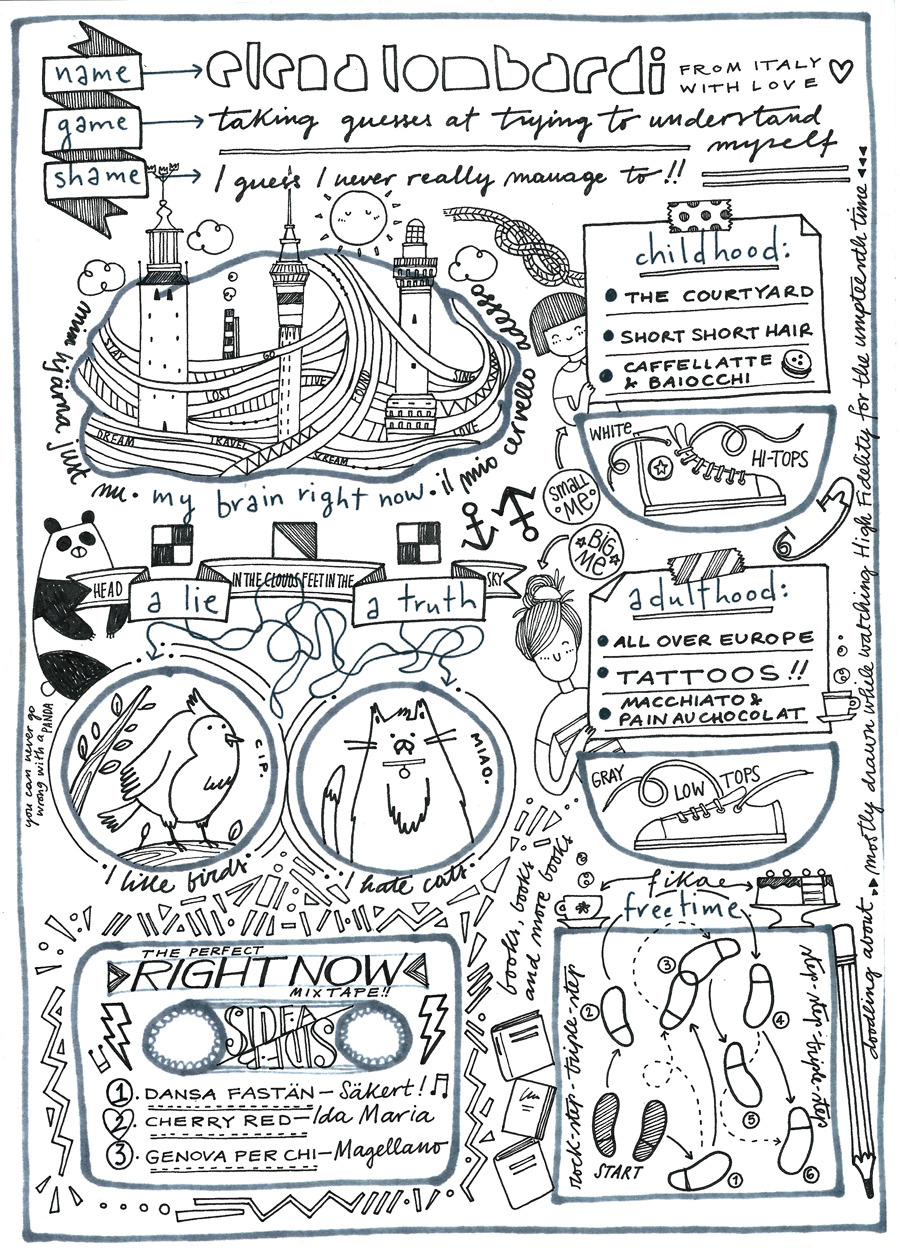 name
elena lombardi
FROM ITALY
WITH LOVE
game
taking guesses at trying to understand
myself
shame
I guess I never really manage to !!
STAY
GO
LOST
LIVE
FIND
SING
DREAM
TRAVEL
SCREAM
LOVE
min hjärna just nu · my brain right now · il mio cervello adesso
childhood:
THE COURTYARD
SHORT SHORT HAIR
CAFFELLATTE
& BAIOCCHI
WHITE
HI-TOPS
SMALL
ME
BIG
ME
HEAD
IN THE CLOUDS FEET IN THE
SKY
a lie
a truth
you can never go
wrong with a PANDA
CIP.
I like birds
MIAO.
I hate cats
adulthood:
ALL OVER EUROPE
TATTOOS !!
MACCHIATO &
PAIN AU CHOCOLAT
GRAY
LOW
TOPS
books, books
and more books
fika
free time
rock-step-triple-step
step-step-triple-step
START
1
2
3
4
5
6
THE PERFECT
RIGHT NOW
MIXTAPE!!
1. DANSA FASTÄN - Säkert!
2. CHERRY RED - Ida Maria
3. GENOVA PER CHI - Magellano
doodling about mostly drawn while watching High Fidelity for the umpteenth time